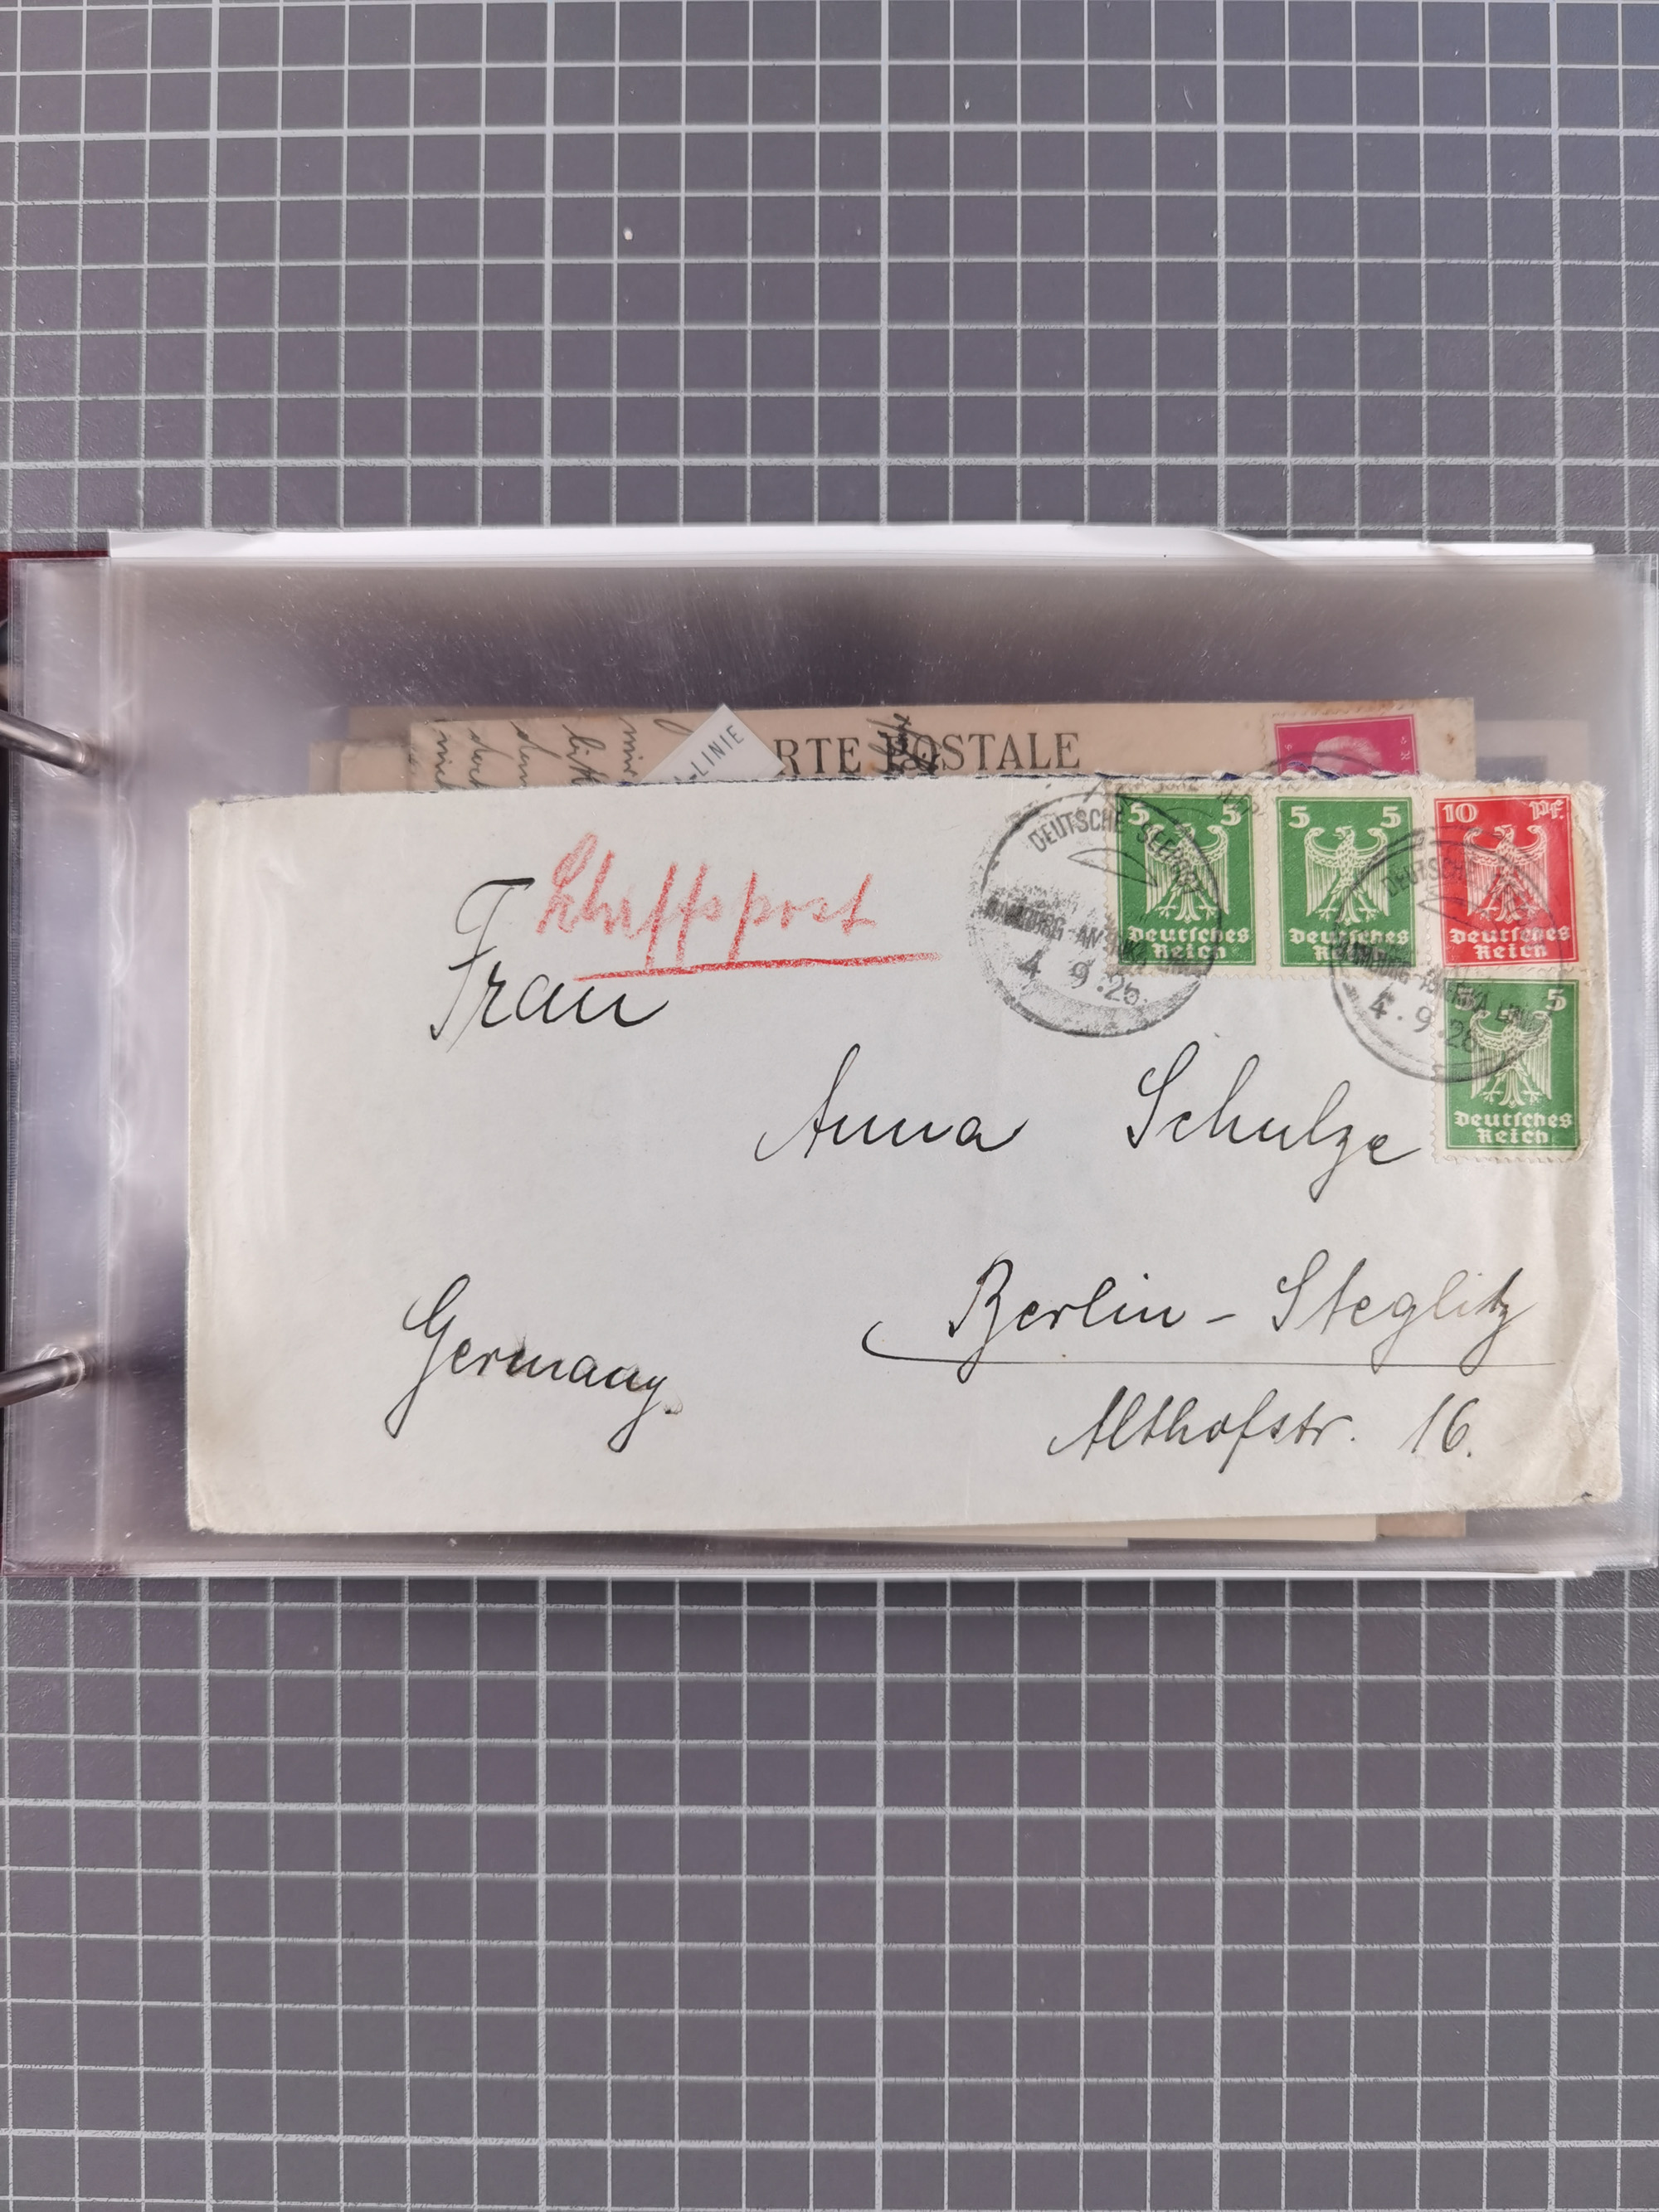 -LINIE
RTE POSTALE
Schiffspost
Frau
Anna Schulze
Berlin - Steglitz
Althofstr. 16.
Germany.
5 5
Deutsches
Reich
5 5
Deutsches
Reich
10 Pf.
Deutsches
Reich
5
Deutsches
Reich
DEUTSCHE SEEPOST
HAMBURG-AMERIKA LINIE
4.9.26.
DEUTSCHE
HAMBURG-AMERIKA LINIE
4.9.26.